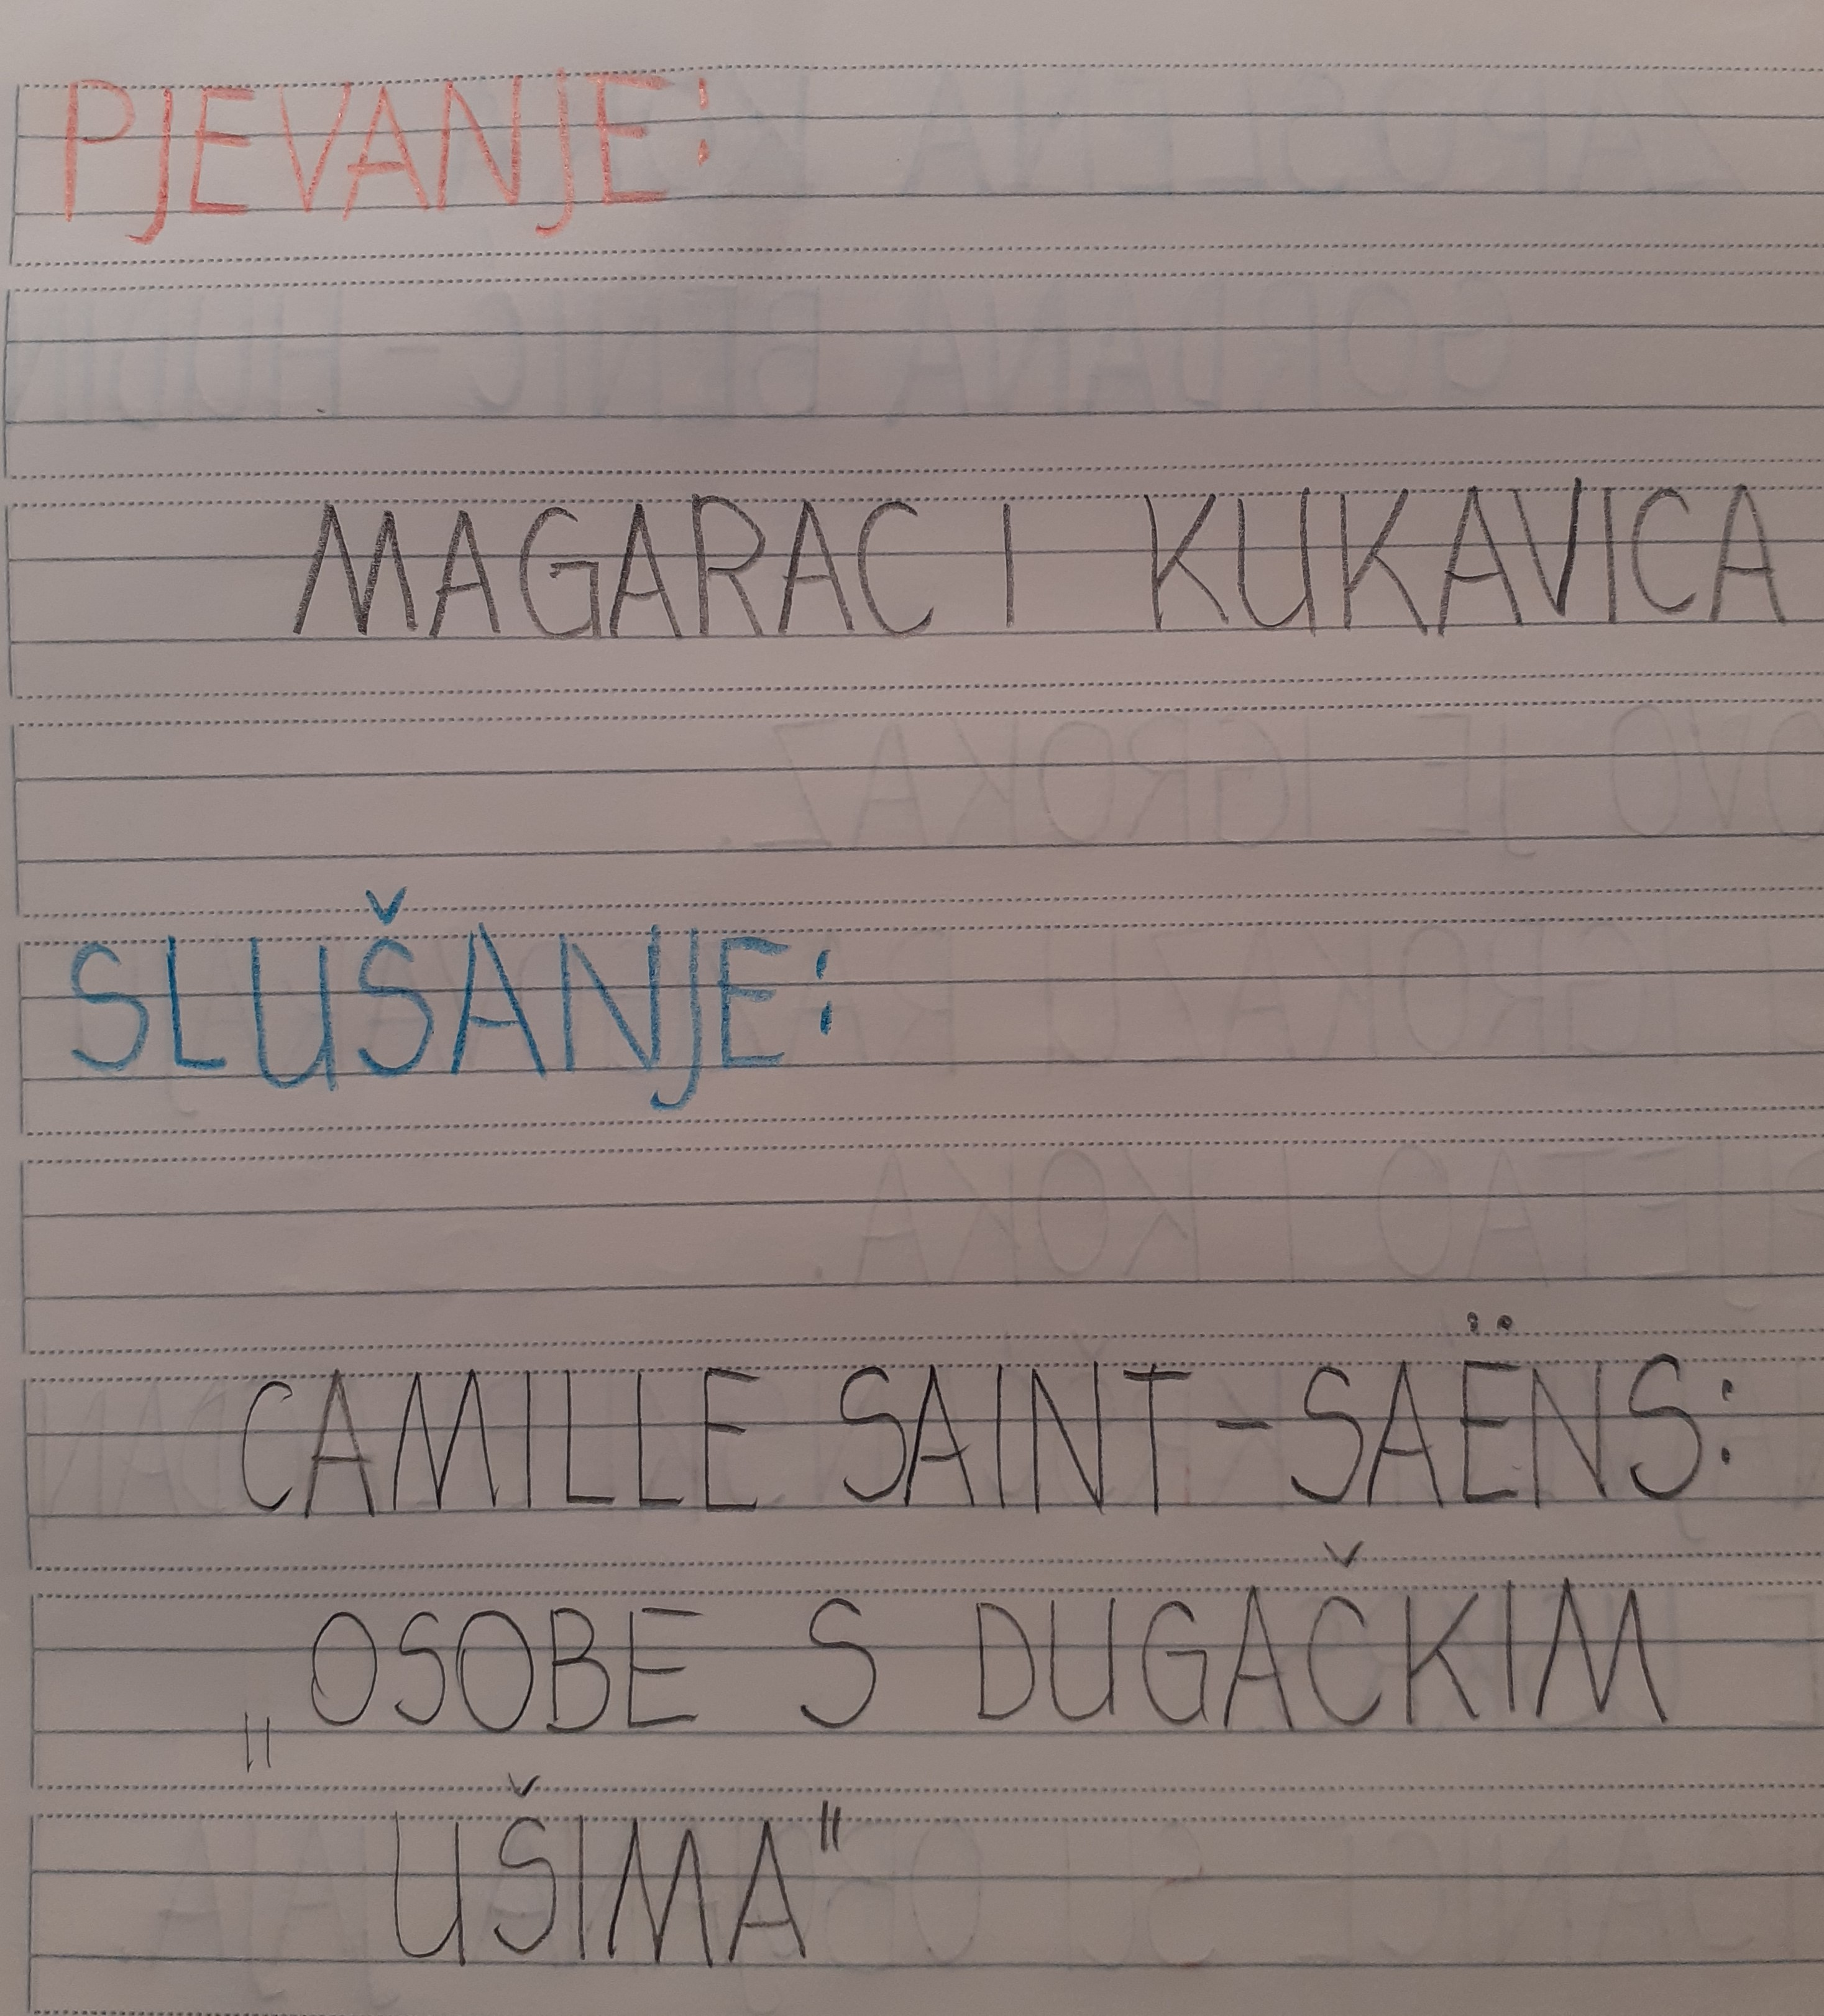 PJEVANJE:
MAGARAC I KUKAVICA
SLUŠANJE:
CAMILLE SAINT-SAËNS:
„OSOBE S DUGAČKIM
UŠIMA"